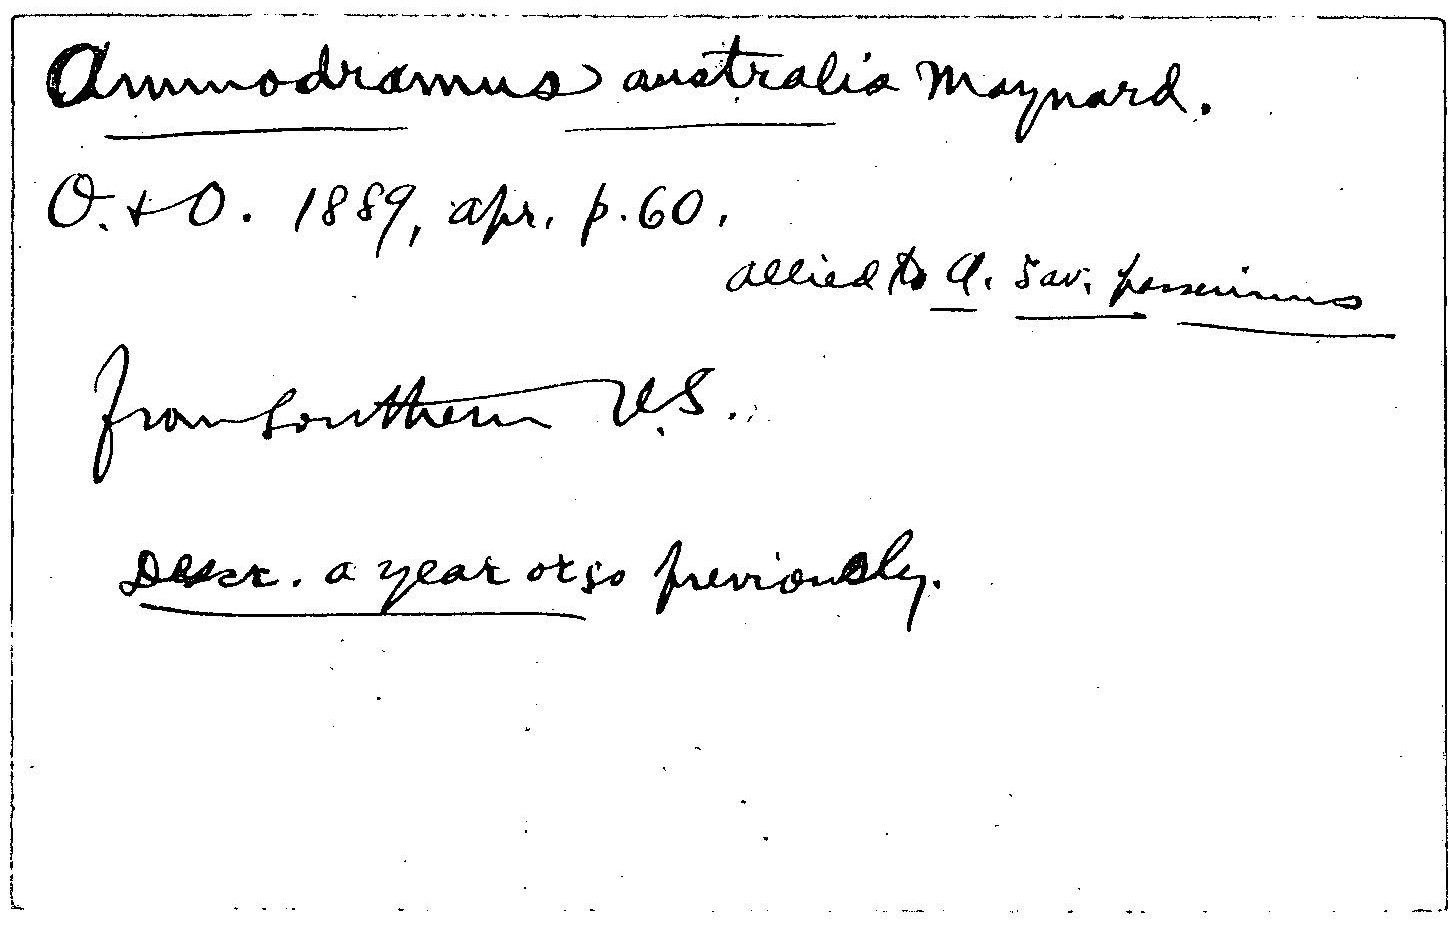 Ammodramus australis Maynard.
O. & O. 1889, Apr. p. 60.
allied to A. sav. passerinus
from Southern U.S.
Descr. a year or so previously.